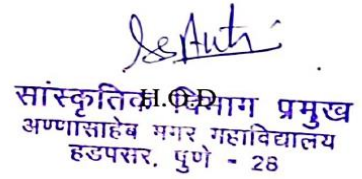 सांस्कृतिक विभाग प्रमुख
H.O.D
अण्णासाहेब मगर महाविद्यालय
हडपसर, पुणे - 28